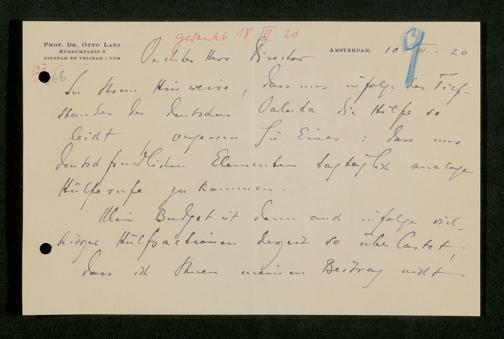 gedankt 18. III. 20
PROF. DR. OTTO LANZ
MUSEUMPLEIN 9
DINSDAG EN VRIJDAG 1 UUR
AMSTERDAM, 10 III. 20
9
66
Herr Director
In Ihrem Hinweise, dass uns infolge des Tief-
standes der deutschen Valuta die Hilfe so
leicht Eines: dass uns
deutschfreundlichen Elementen tagtäglich analoge
Hülferufe zu kommen.
Mein Budget ist denn auch infolge viel-
Hülfsactionen derzeit so überlastet,
dass ich Ihnen meinen Beitrag nicht